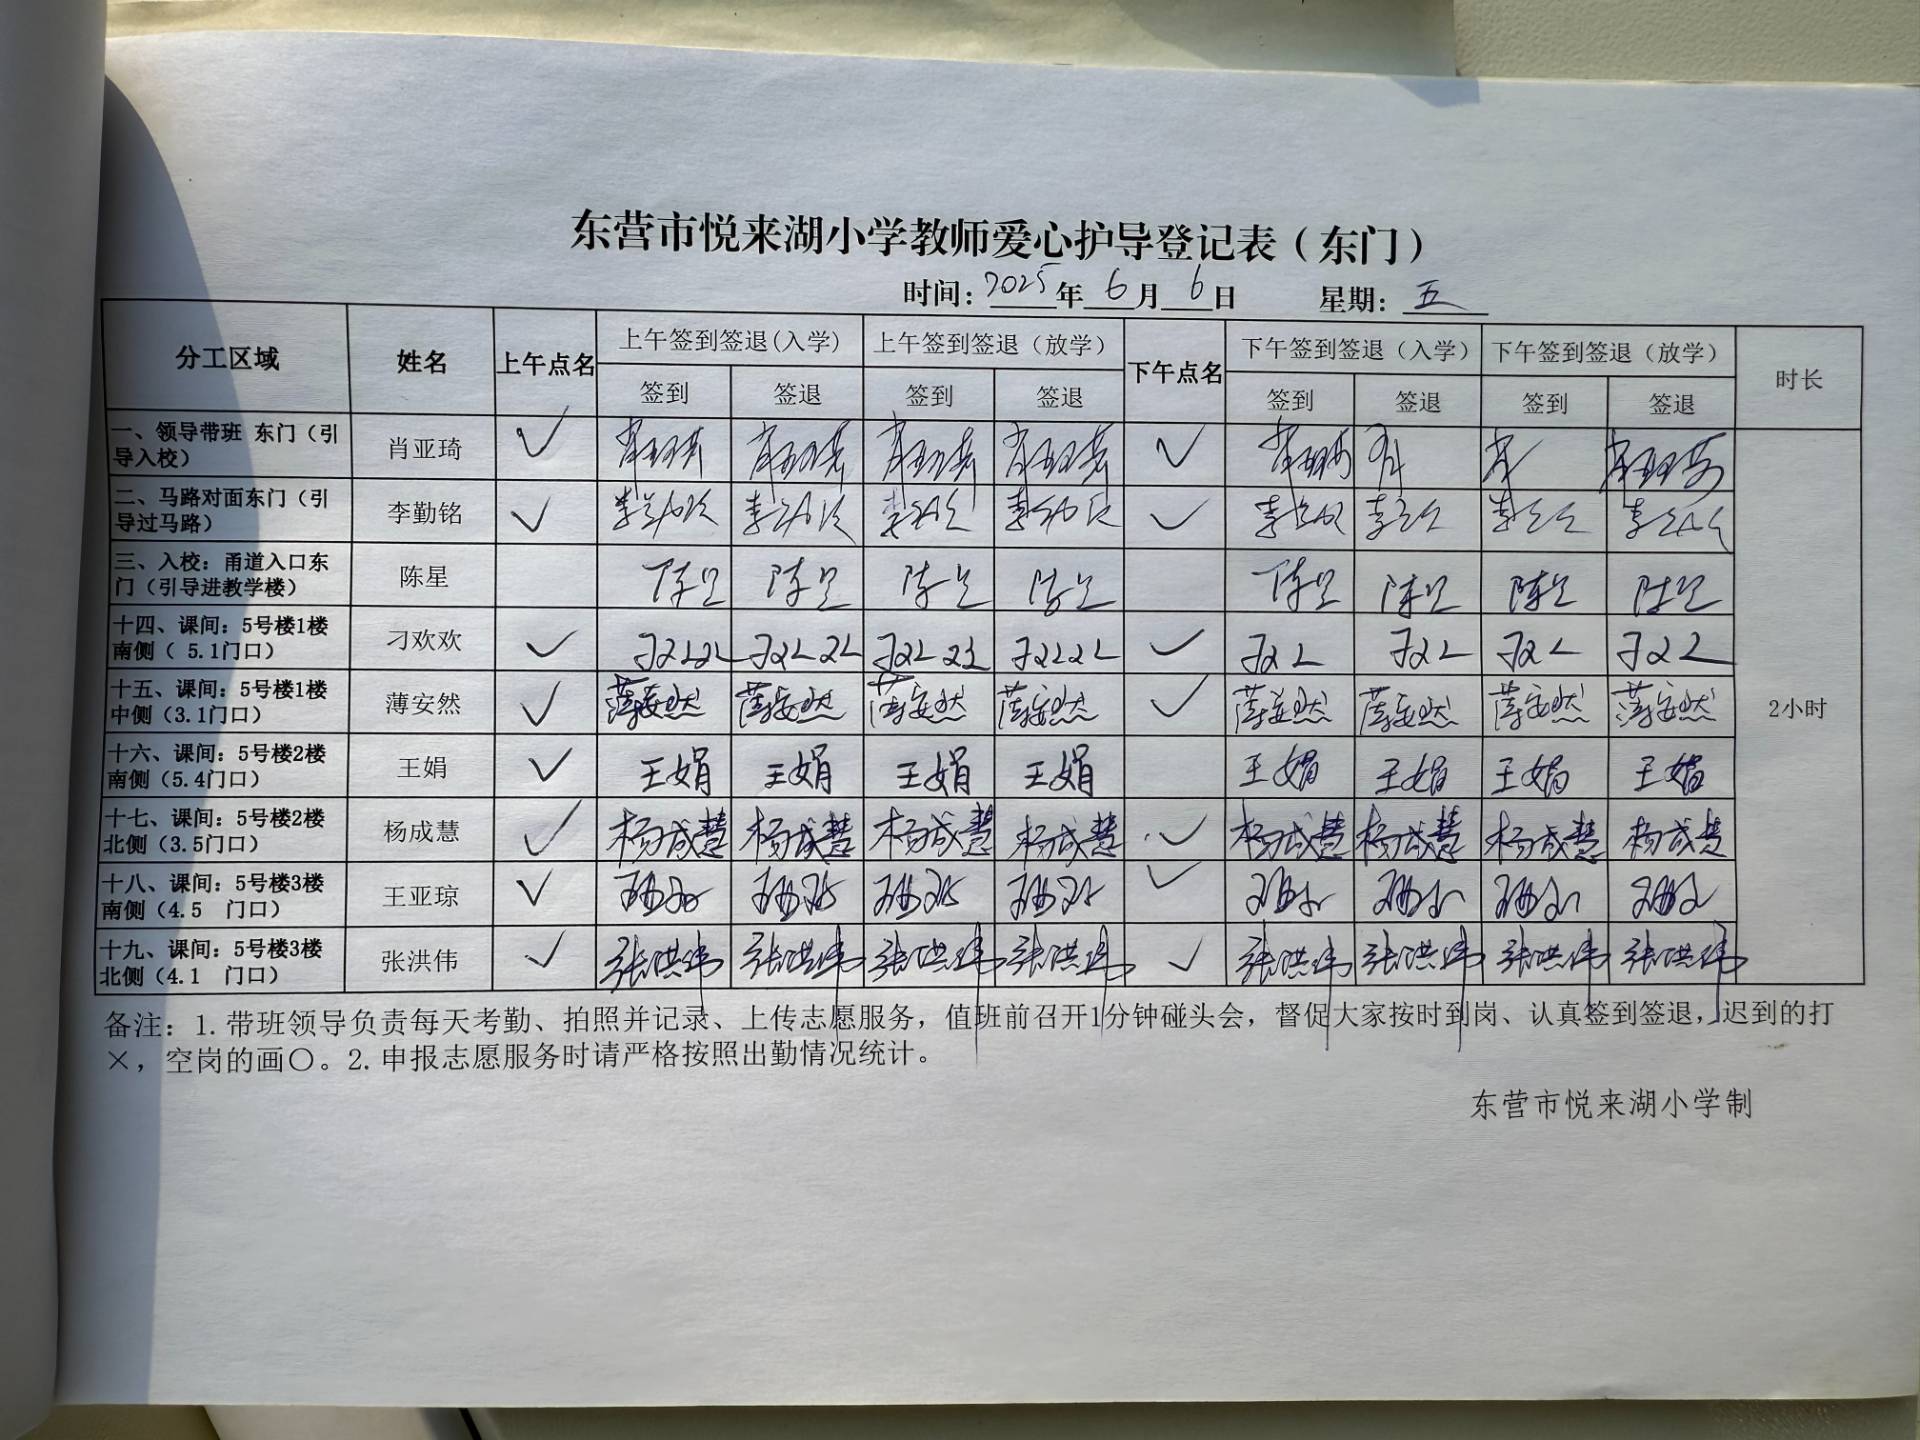 东营市悦来湖小学教师爱心护导登记表（东门）
时间：2025年 6月 6日 星期：五
分工区域 姓名 上午点名 上午签到签退(入学) 上午签到签退（放学） 下午点名 下午签到签退（入学） 下午签到签退（放学） 时长
签到 签退 签到 签退 签到 签退 签到 签退
一、领导带班 东门（引
导入校） 肖亚琦 ✓ ✓
二、马路对面东门（引
导过马路） 李勤铭 ✓ ✓
三、入校：甬道入口东
门（引导进教学楼） 陈星 陈星 陈星 陈星 陈星 陈星 陈星 陈星 陈星
十四、课间：5号楼1楼
南侧（ 5.1门口） 刁欢欢 ✓ ✓
十五、课间：5号楼1楼
中侧（3.1门口） 薄安然 ✓ 薄安然 薄安然 薄安然 薄安然 ✓ 薄安然 薄安然 薄安然 薄安然
2小时
十六、课间：5号楼2楼
南侧（5.4门口） 王娟 ✓ 王娟 王娟 王娟 王娟 王娟 王娟 王娟 王娟
十七、课间：5号楼2楼
北侧（3.5门口） 杨成慧 ✓ 杨成慧 杨成慧 杨成慧 杨成慧 ✓ 杨成慧 杨成慧 杨成慧 杨成慧
十八、课间：5号楼3楼
南侧（4.5 门口） 王亚琼 ✓ ✓
十九、课间：5号楼3楼
北侧（4.1 门口） 张洪伟 ✓ 张洪伟 张洪伟 张洪伟 张洪伟 ✓ 张洪伟 张洪伟 张洪伟 张洪伟
备注：1.带班领导负责每天考勤、拍照并记录、上传志愿服务，值班前召开1分钟碰头会，督促大家按时到岗、认真签到签退，迟到的打
×，空岗的画〇。2.申报志愿服务时请严格按照出勤情况统计。
东营市悦来湖小学制